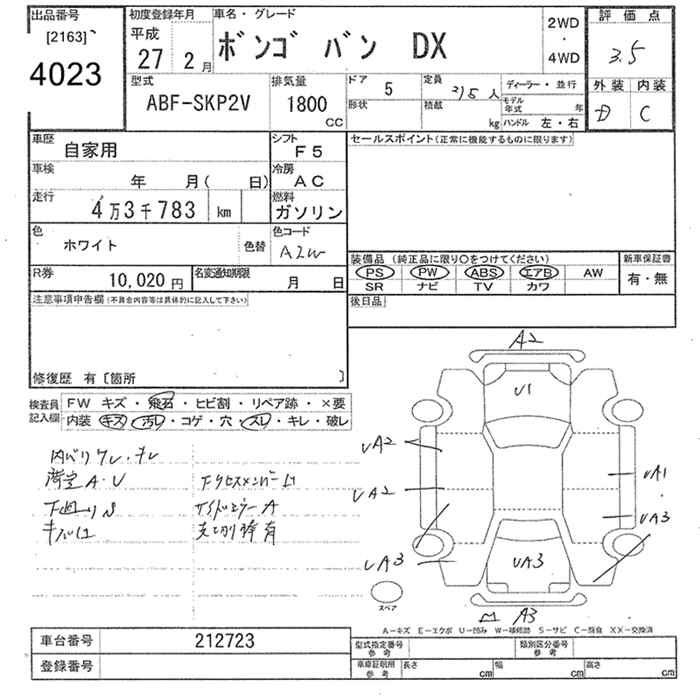 出品番号
[2163]
4023
初度登録年月
平成
27 2月
車名・グレード
ボンゴ バン DX
2WD
・
4WD
評価点
3.5
外装 内装
D C
型式
ABF-SKP2V
排気量
1800
CC
ドア 5
形状
定員 人
積載 kg
ディーラー・並行
モデル年式 年
ハンドル 左・右
車歴
自家用
シフト
F5
車検
年 月( 日)
冷房
AC
走行
4万3千783 km
燃料
ガソリン
色
ホワイト
色替
色コード
A2W
R券
10,020円
名変通知期限
月 日
セールスポイント(正常に機能するものに限ります)
装備品 (純正品に限り○をつけてください)
PS PW ABS エアB AW
SR ナビ TV カワ
新車保証書
有・無
後日品
注意事項申告欄(不具合内容等は具体的に記入して下さい)
修復歴 有〔箇所 〕
検査員記入欄
FW キズ・飛石・ヒビ割・リペア跡・×要
内装 キズ・汚レ・コゲ・穴・スレ・キレ・破レ
下廻りS
A2
U1
UA2
UA2
UA3
UA1
UA3
UA3
A3
スペア
A-キズ E-エクボ U-凹み W-補修跡 S-サビ C-腐食 XX-交換済
車台番号 212723
登録番号
型式指定番号 参考
類別区分番号 参考
車庫証明用 参考
長さ cm
幅 cm
高さ cm